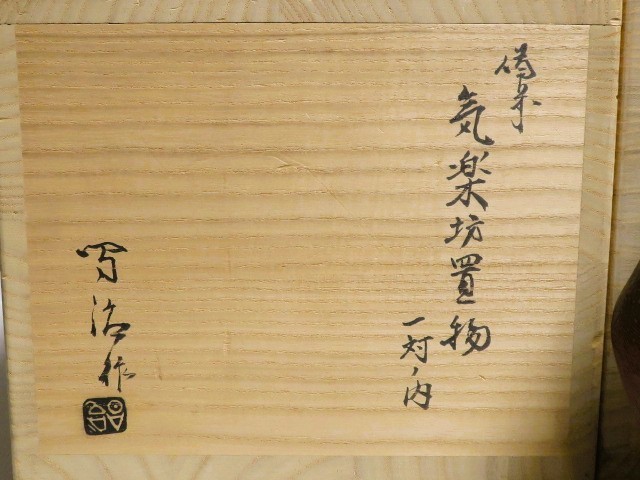 備前
気楽坊置物
一対ノ内
治作